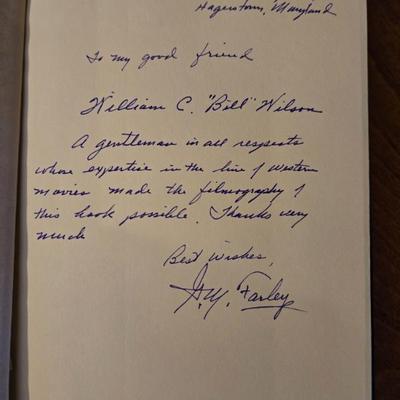 Hagerstown, Maryland
To my good friend
William C. "Bill" Wilson
A gentleman in all respects
whose expertise in the line of western
movies made the filmography of
this book possible. Thanks very
much
Best Wishes,
G.M. Farley